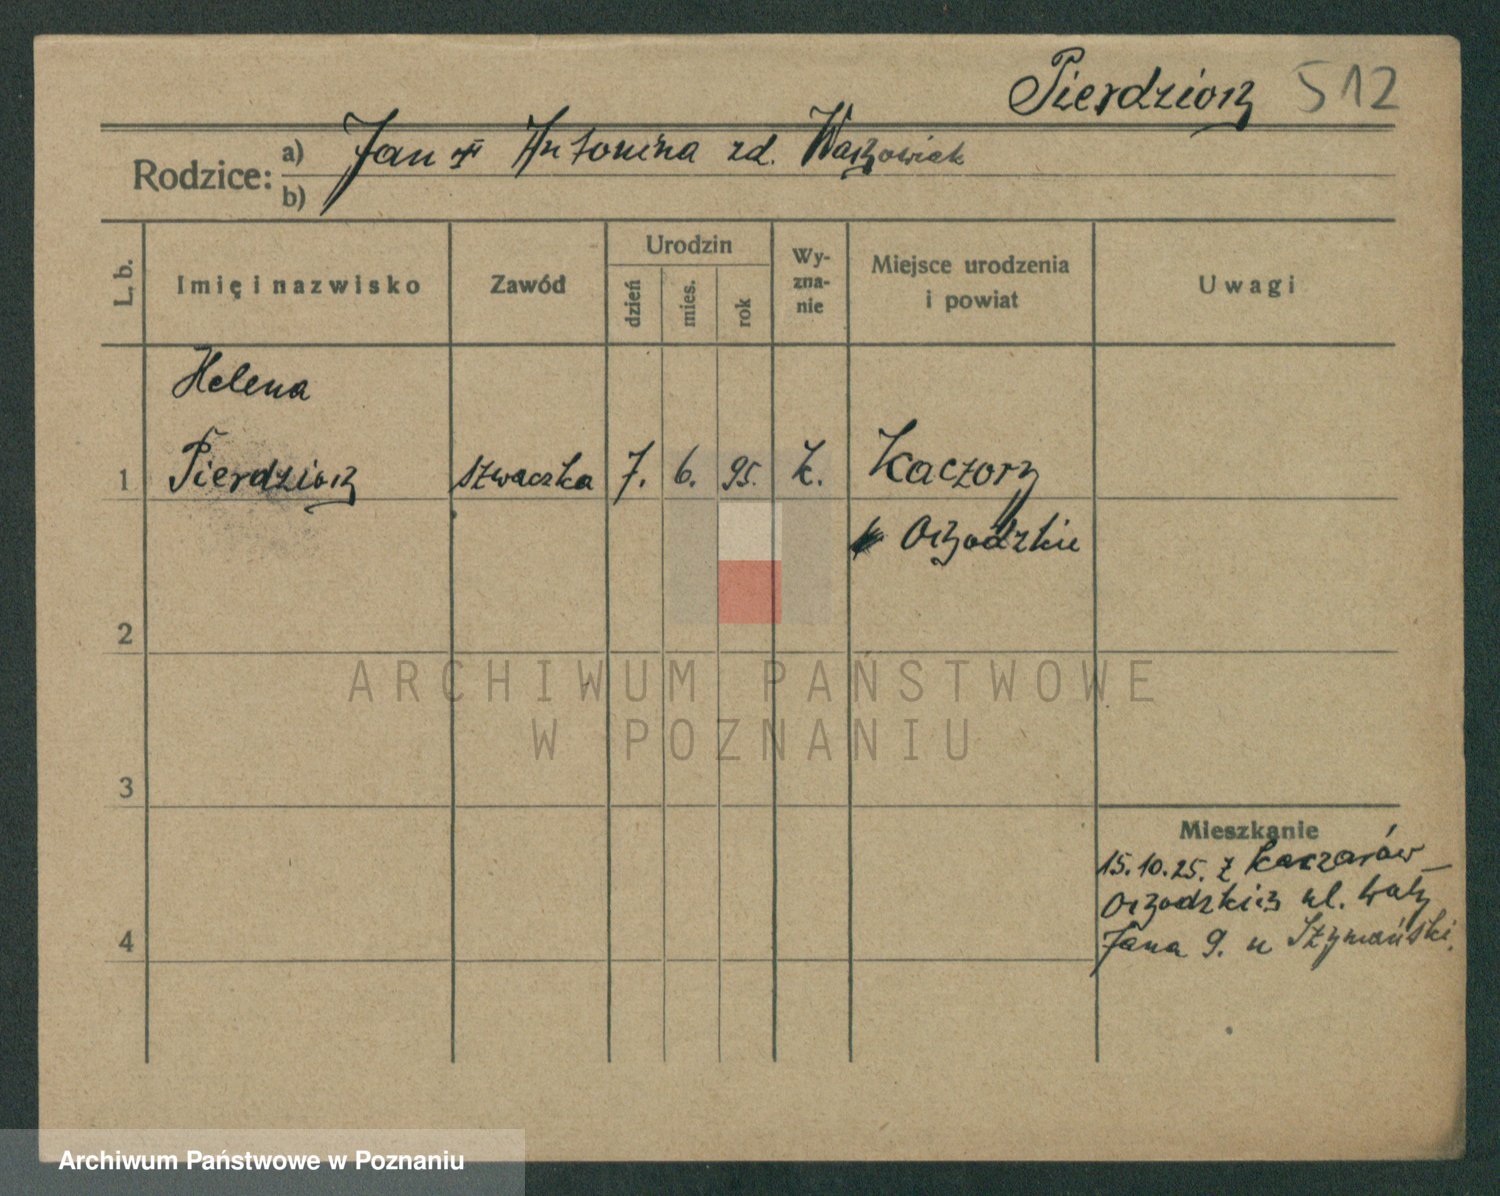 Pierdzioch 512
Rodzice: a) Jan + Antonina zd.
b)
L. b. Imię i nazwisko Zawód Urodzin dzień mies. rok Wyznanie Miejsce urodzenia i powiat Uwagi
Helena
1 Pierdzioch szwaczka 7. 6. 95. k. Kaczory
2
3
Mieszkanie
15.10.25. z
ul. Wały
4 Jana 9. u Szymański.
ARCHIWUM PAŃSTWOWE
W POZNANIU
Archiwum Państwowe w Poznaniu